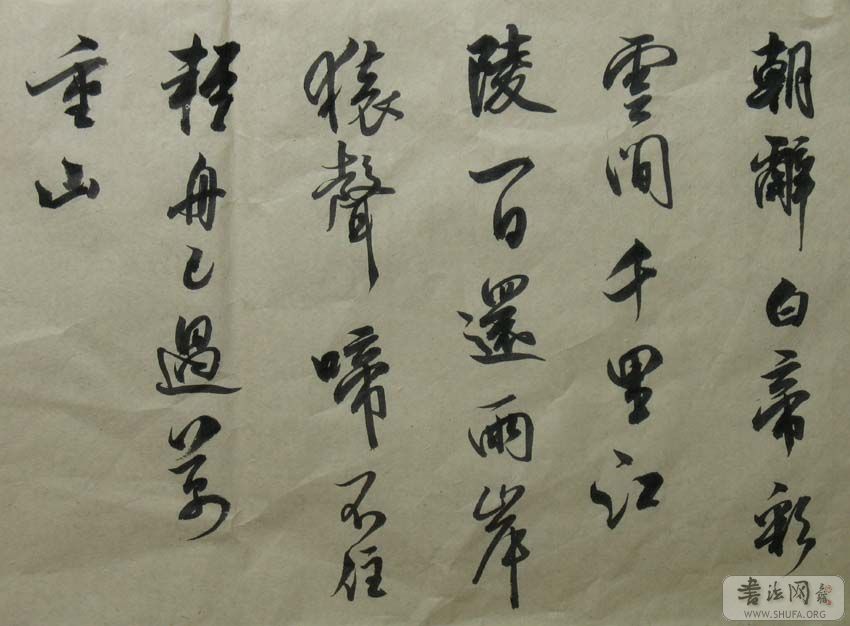 朝辭白帝彩
雲間千里江
陵一日還兩岸
猿聲啼不住
輕舟已過萬
重山
書法网
WWW.SHUFA.ORG